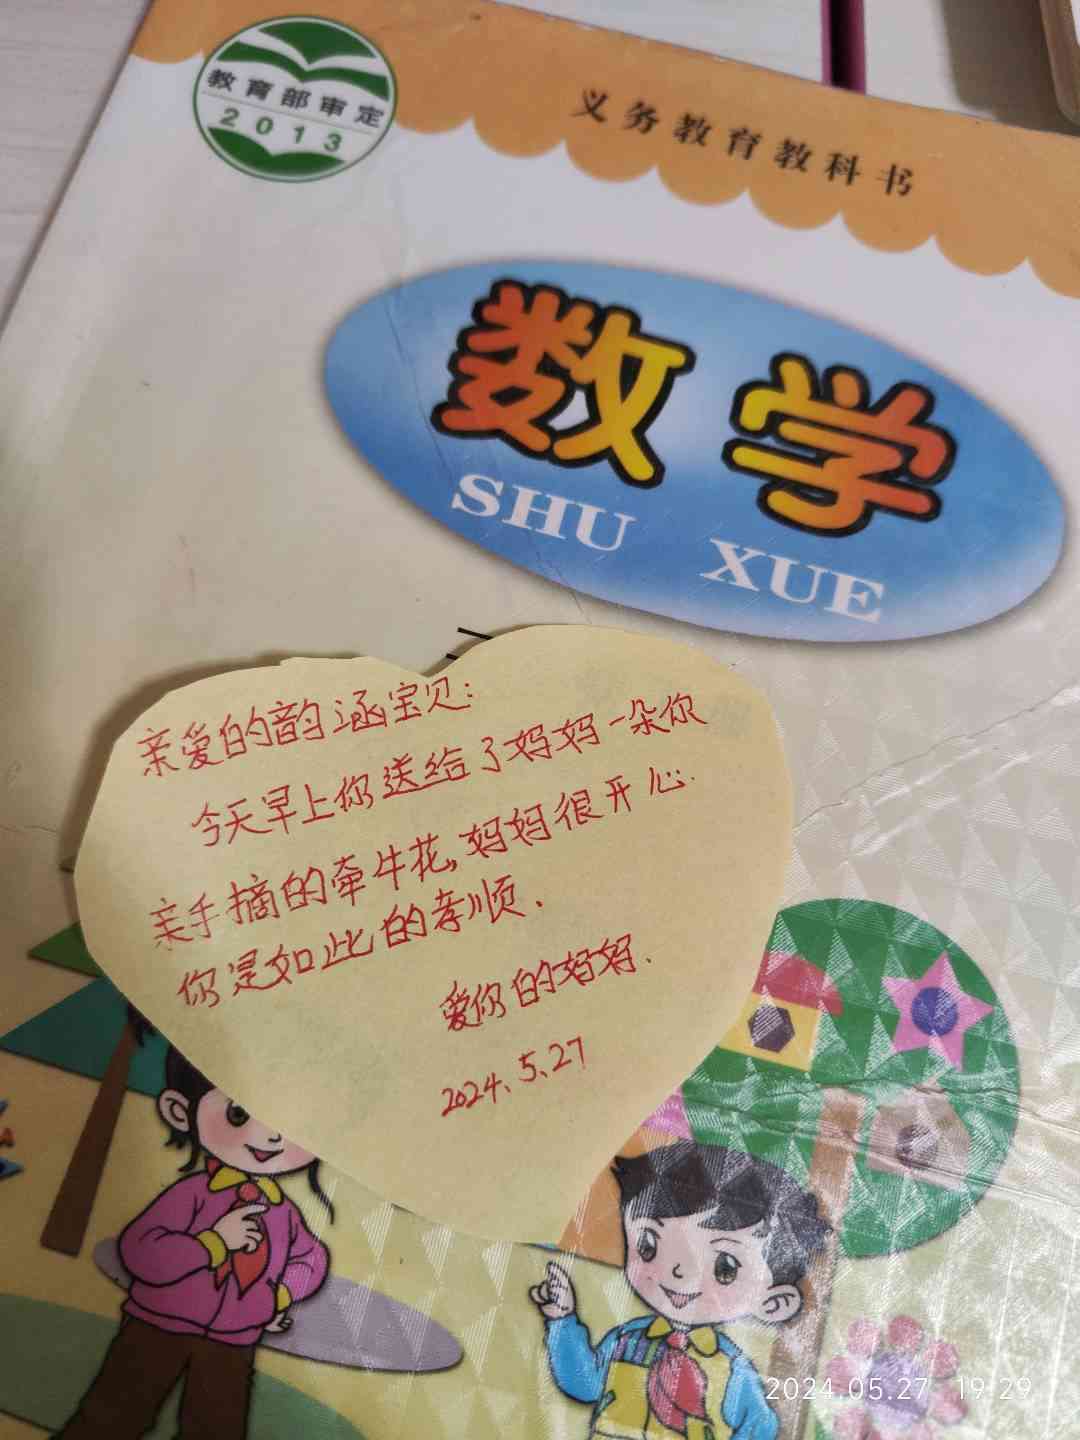 教育部审定
2013
义务教育教科书
数学
SHU XUE
亲爱的韵涵宝贝:
今天早上你送给了妈妈一朵你
亲手摘的牵牛花,妈妈很开心.
你是如此的孝顺.
爱你的妈妈.
2024.5.27
2024.05.27 19:29